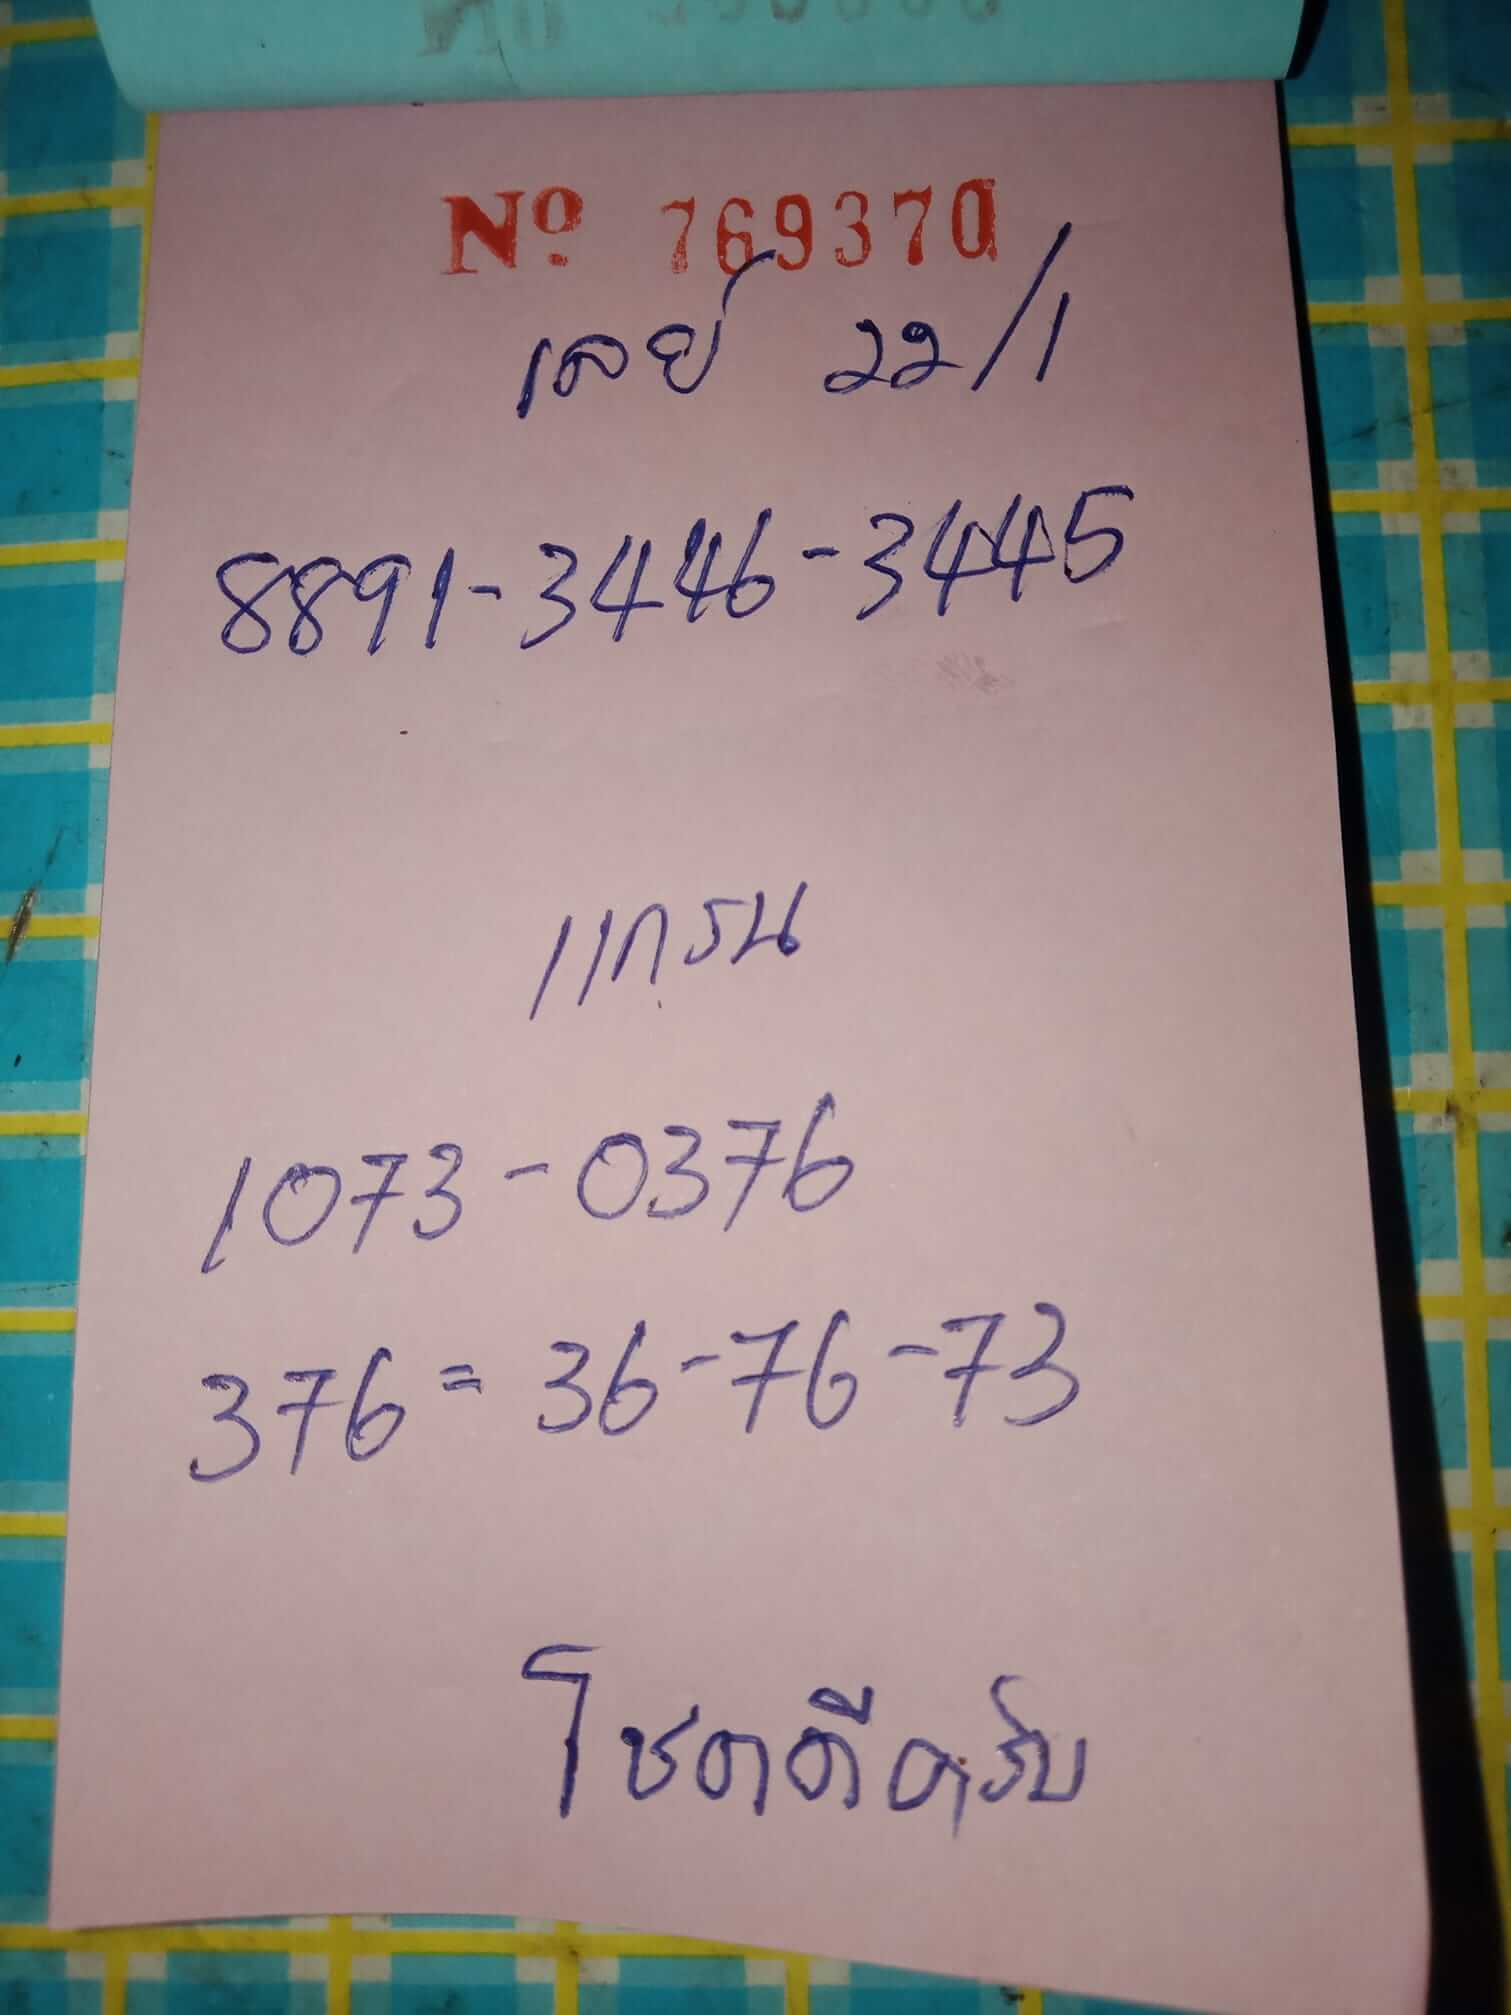 No 769370
เลย์ 22/1
8891-3446-3445
แกรน
1073-0376
376=36-76-73
โชคดีครับ